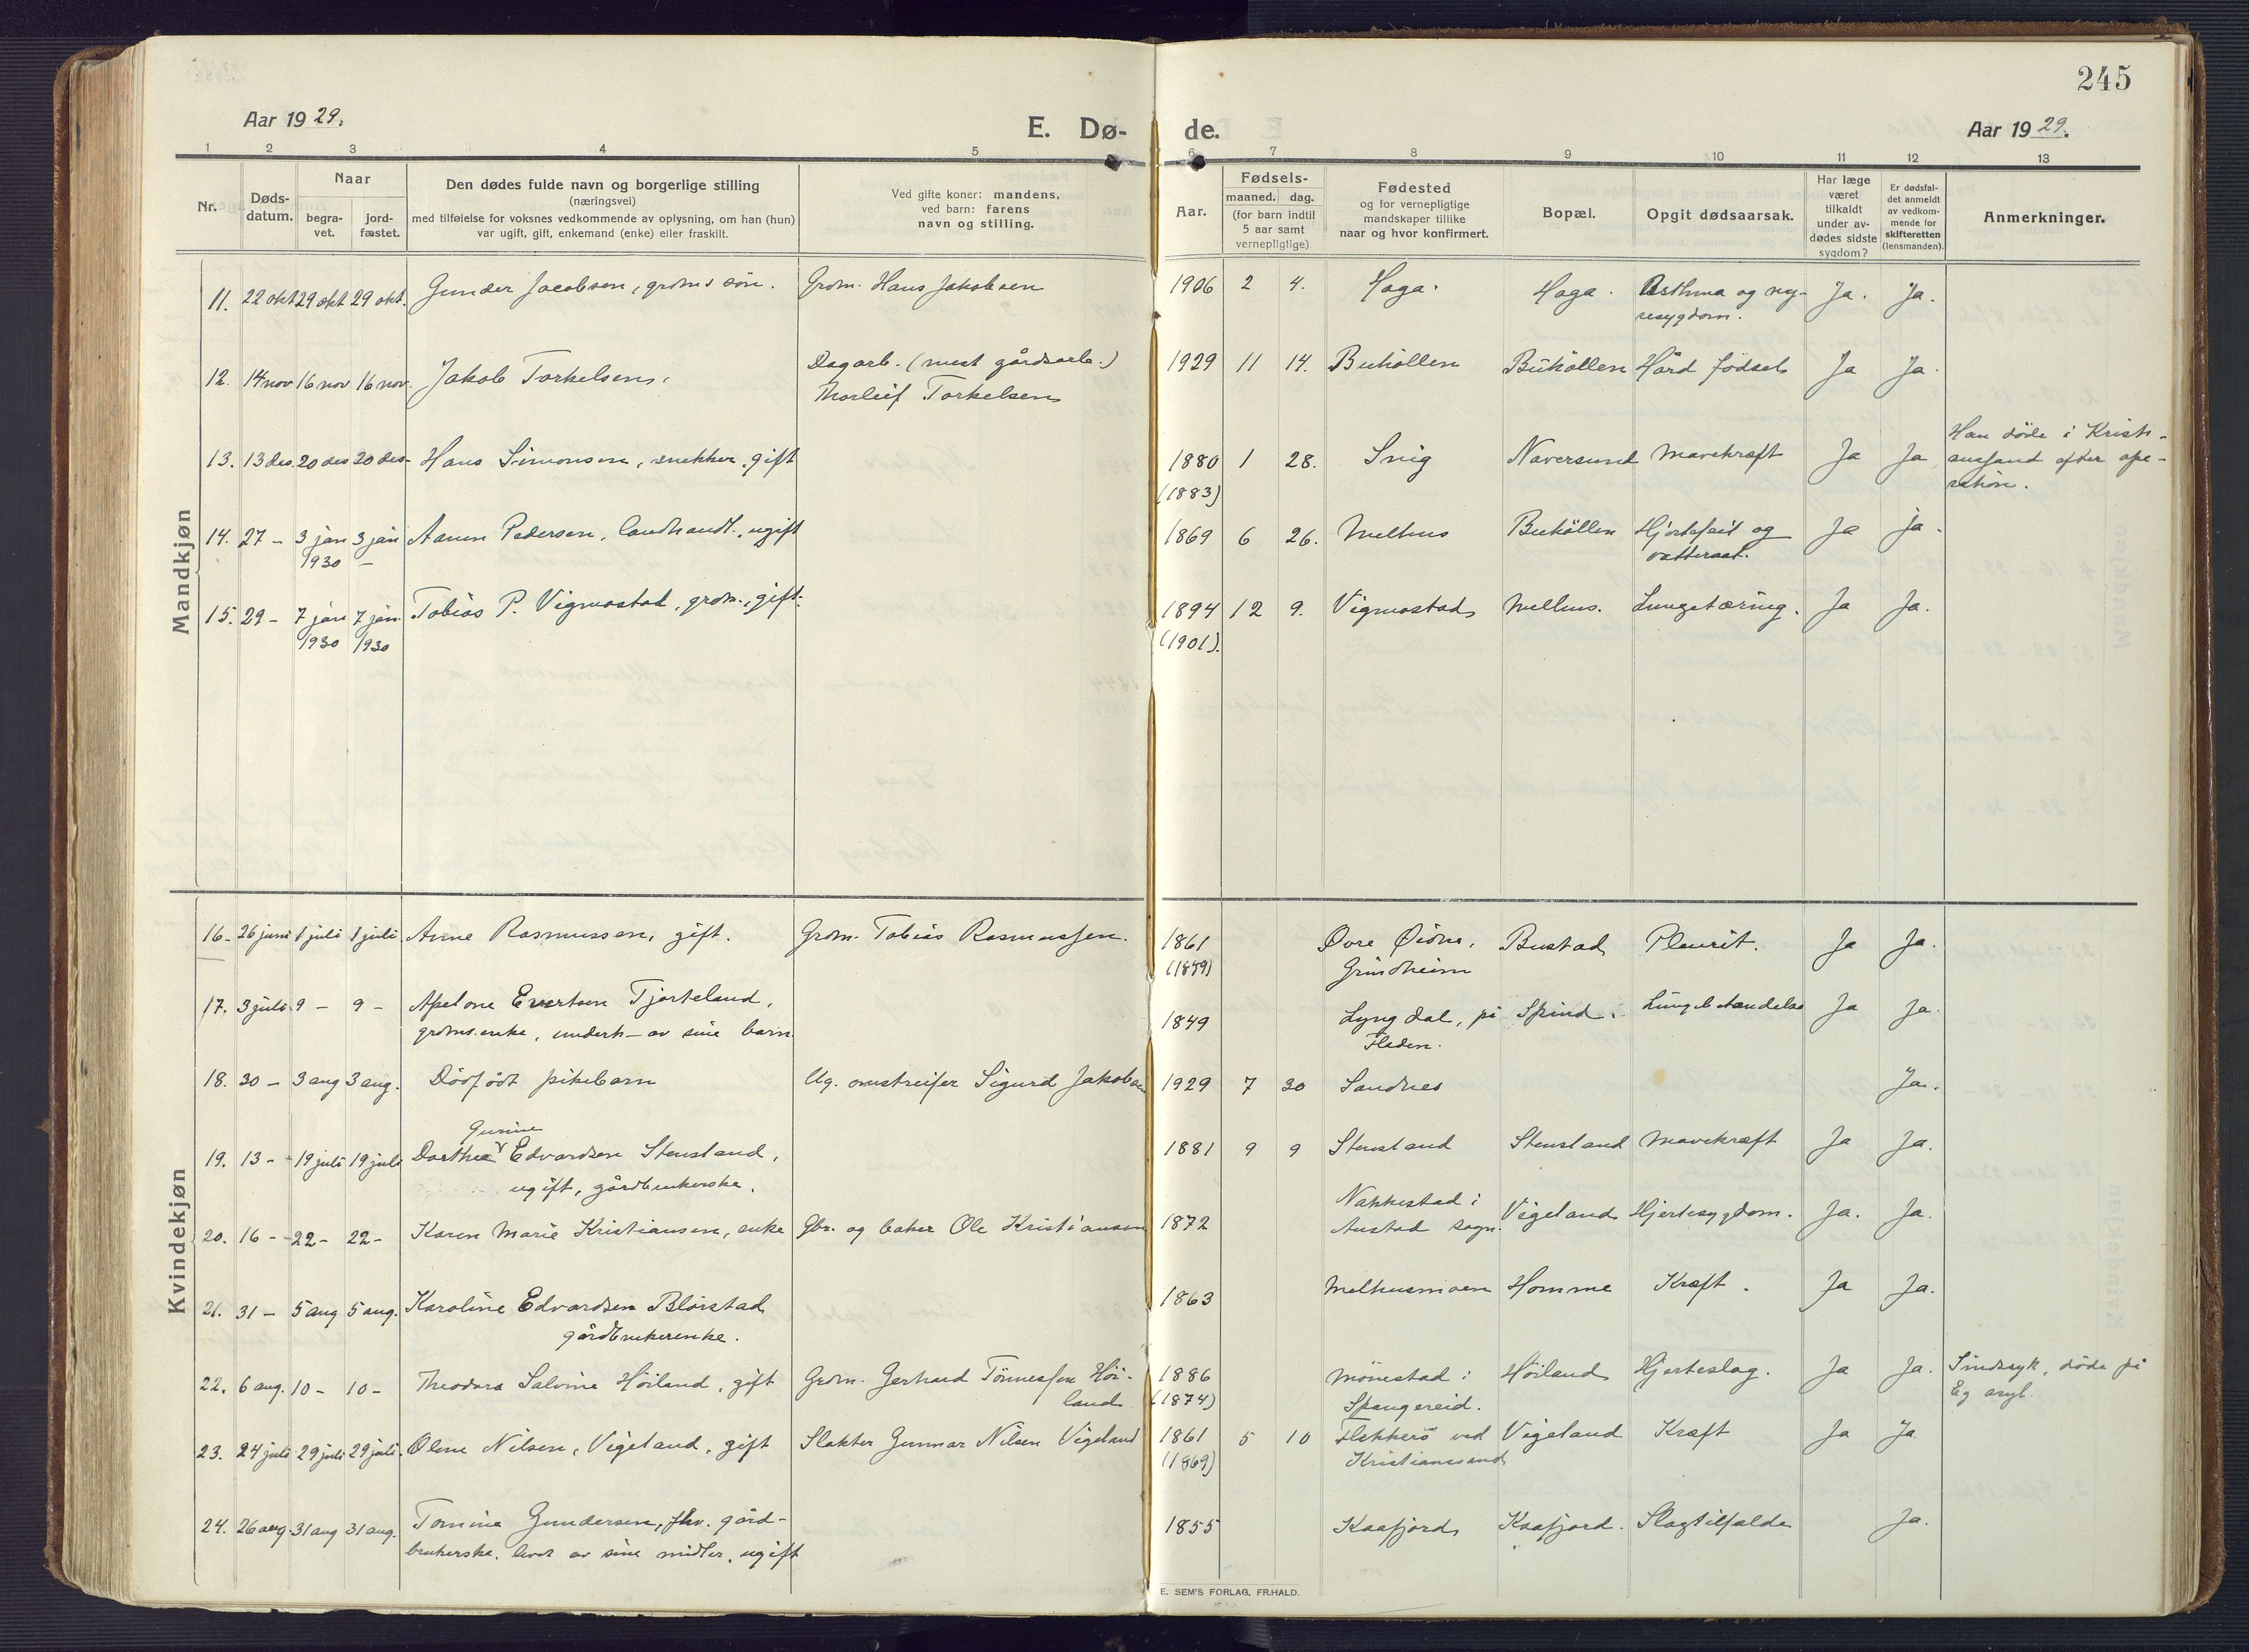 245
Aar 1929.
E. Dø-
de.
Aar 1929.
1 2 3 4 5 6 7 8 9 10 11 12 13
Nr.
Døds-
datum.
Naar
begra-
vet.
jord-
fæstet.
Den dødes fulde navn og borgerlige stilling
(næringsvei)
med tilføielse for voksnes vedkommende av oplysning, om han (hun)
var ugift, gift, enkemand (enke) eller fraskilt.
Ved gifte koner: mandens,
ved barn: farens
navn og stilling.
Aar.
Fødsels-
maaned. dag.
(for barn indtil
5 aar samt
vernepligtige)
Fødested
og for vernepligtige
mandskaper tillike
naar og hvor konfirmert.
Bopæl.
Opgit dødsaarsak.
Har læge
været
tilkaldt
under av-
dødes sidste
sygdom?
Er dødsfal-
det anmeldt
av vedkom-
mende for
skifteretten
(lensmanden).
Anmerkninger.
Mandkjøn
11. 22 okt 29 okt 29 okt. Gunder Jacobsen, grdms søn. Grdm. Hans Jakobsen 1906 2 4. Haga. Haga. Asthma og ny- Ja. Ja.
resygdom.
12. 14 nov 16 nov 16 nov. Jakob Torkelsen. Dagarb. (mest gårdsarb.) 1929 11 14. Buhöllen Buhöllen Hård födsel Ja Ja.
Thorleif Torkelsen
13. 13 des. 20 des 20 des- Hans Simonsen, snekker, gift 1880 1 28. Snig Naversund Mavekræft Ja Ja Han døde i Kristi-
(1883) ansand efter ope-
ration.
14. 27 - 3 jan 3 jan Aanen Pedersen, landhandl., ugift 1869 6 26. Melhus Buhöllen Hjertefeil og Ja Ja.
1930 - vattersot.
15. 29 - 7 jan 7 jan. Tobias P. Vigmostad, grdm., gift. 1894 12 9. Vigmostad Melhus. Lungetæring. Ja Ja.
1930 1930 (1901).
Kvindekjøn
16- 26 juni 1 juli 1 juli Anne Rasmussen, gift. Grdm. Tobias Rasmussen. 1861 Øvre Øidne, Bustad Pleurit. Ja Ja.
(1859) Grindheim
17. 3 juli 9 - 9 - Evertsen Tjorteland, 1849 Lyngdal, på Spind. Lungebetændelse Ja Ja
grdms.enke, underh- av sine barn.
18. 30 - 3 aug 3 aug. Dödfödt pikebarn Ug. omstreifer Sigurd Jakobsen 1929 7 30 Sandnes Ja.
Gurine
19. 13 - 19 juli 19 juli Dorthea Edvardsen Stensland, 1881 9 9 Stensland Stensland Mavekræft Ja Ja.
ugift, gårdbrukerske.
20. 16 - 22 - 22 - Karen Marie Kristiansen, enke Gbr. og baker Ole Kristiansen 1872 Nakkestad i Vigeland Hjertesygdom. Ja. Ja.
Austad sogn.
21. 31 - 5 aug 5 aug. Karoline Edvardsen Blørstad 1863 Melhusmoen Homme Kræft. Ja Ja.
gårdbrukerenke.
22. 6 aug. 10 - 10 - Theodora Salvine Höiland, gift Grdm. Gerhard Tönnessen Höi- 1886 Mönestad i Höiland Hjerteslag. Ja Ja. Sindssyk, døde på
land (1874) Spangereid. Eg asyl.
23. 24 juli 29 juli 29 juli. Oline Nilsen, Vigeland, gift Slakter Gunnar Nilsen Vigeland 1861 5 10 Flekkerö ved Vigeland Kræft Ja Ja
(1869) Kristianssand
24. 26 aug. 31 aug 31 aug. Tomine Gundersen, fhv. gård- 1855 Kaafjord Kaafjord. Slagtilfælde Ja.
brukerske. levet av sine midler, ugift
E. SEM'S FORLAG, FR.HALD.